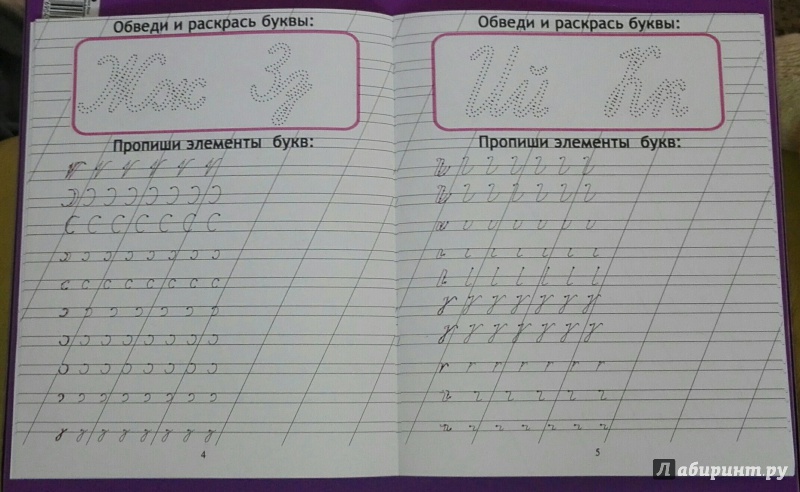 Обведи и раскрась буквы:
Жж Зз
Пропиши элементы букв:
4
Обведи и раскрась буквы:
Ий Кк
Пропиши элементы букв:
5
Лабиринт.ру